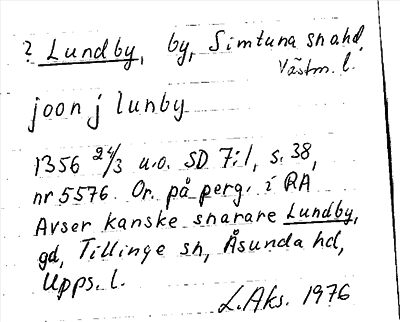 ? Lundby, by, Simtuna sn o hd,
Västm. l.
joon j lunby
1356 24/3 u.o. SD 7:1, s. 38,
nr 5576. Or. på perg. i RA
Avser kanske snarare Lundby,
gd, Tillinge sn, Åsunda hd,
Upps. l.
L. Aks. 1976